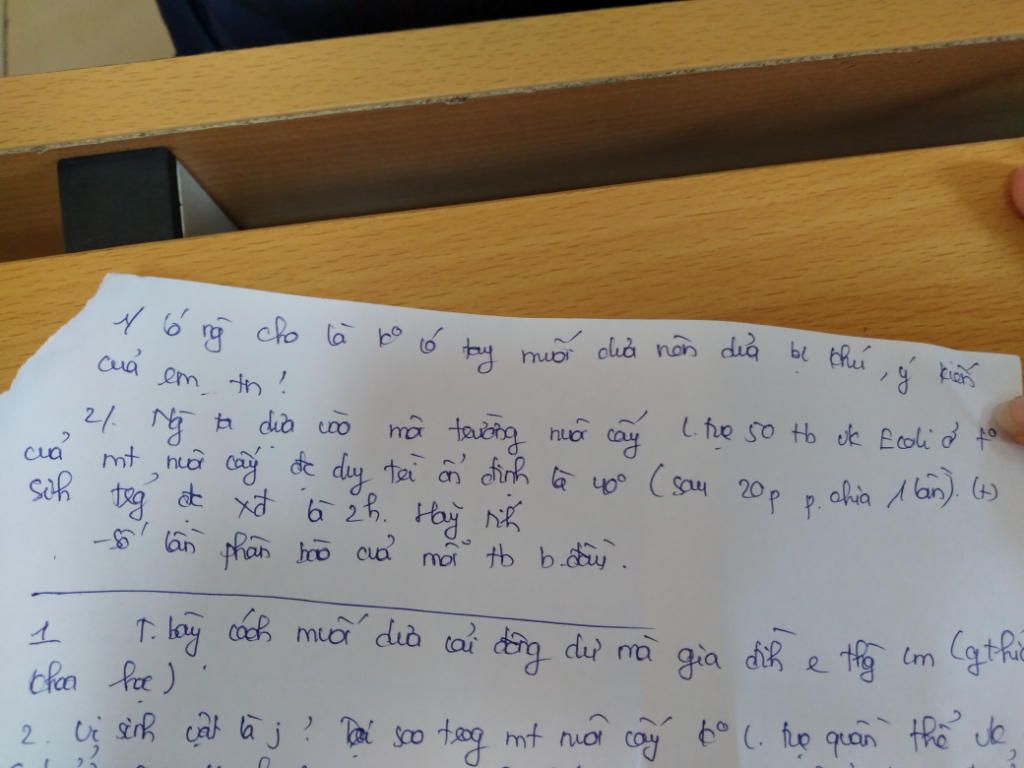 1/ Có ng cho là k° có tay muối dưa nên dưa bị khú, ý kiến
của em tn ?
2/. Ng ta đưa vào môi trường nuôi cấy l.tục 50 tb vk Ecoli ở t°
của mt nuôi cấy đc duy trì ổn định là 40° (sau 20p p.chia 1 lần). (t)
sinh trg đc xđ là 2h. Hãy tính
- Số lần phân bào của mỗi tb b.đầu.
1 T.bày cách muối dưa cải đông dư mà gia đìh e thg làm (gthíc
khoa học)
2. Vi sinh vật là j ? Tại sao trog mt nuôi cấy k° l. tục quần thể vk